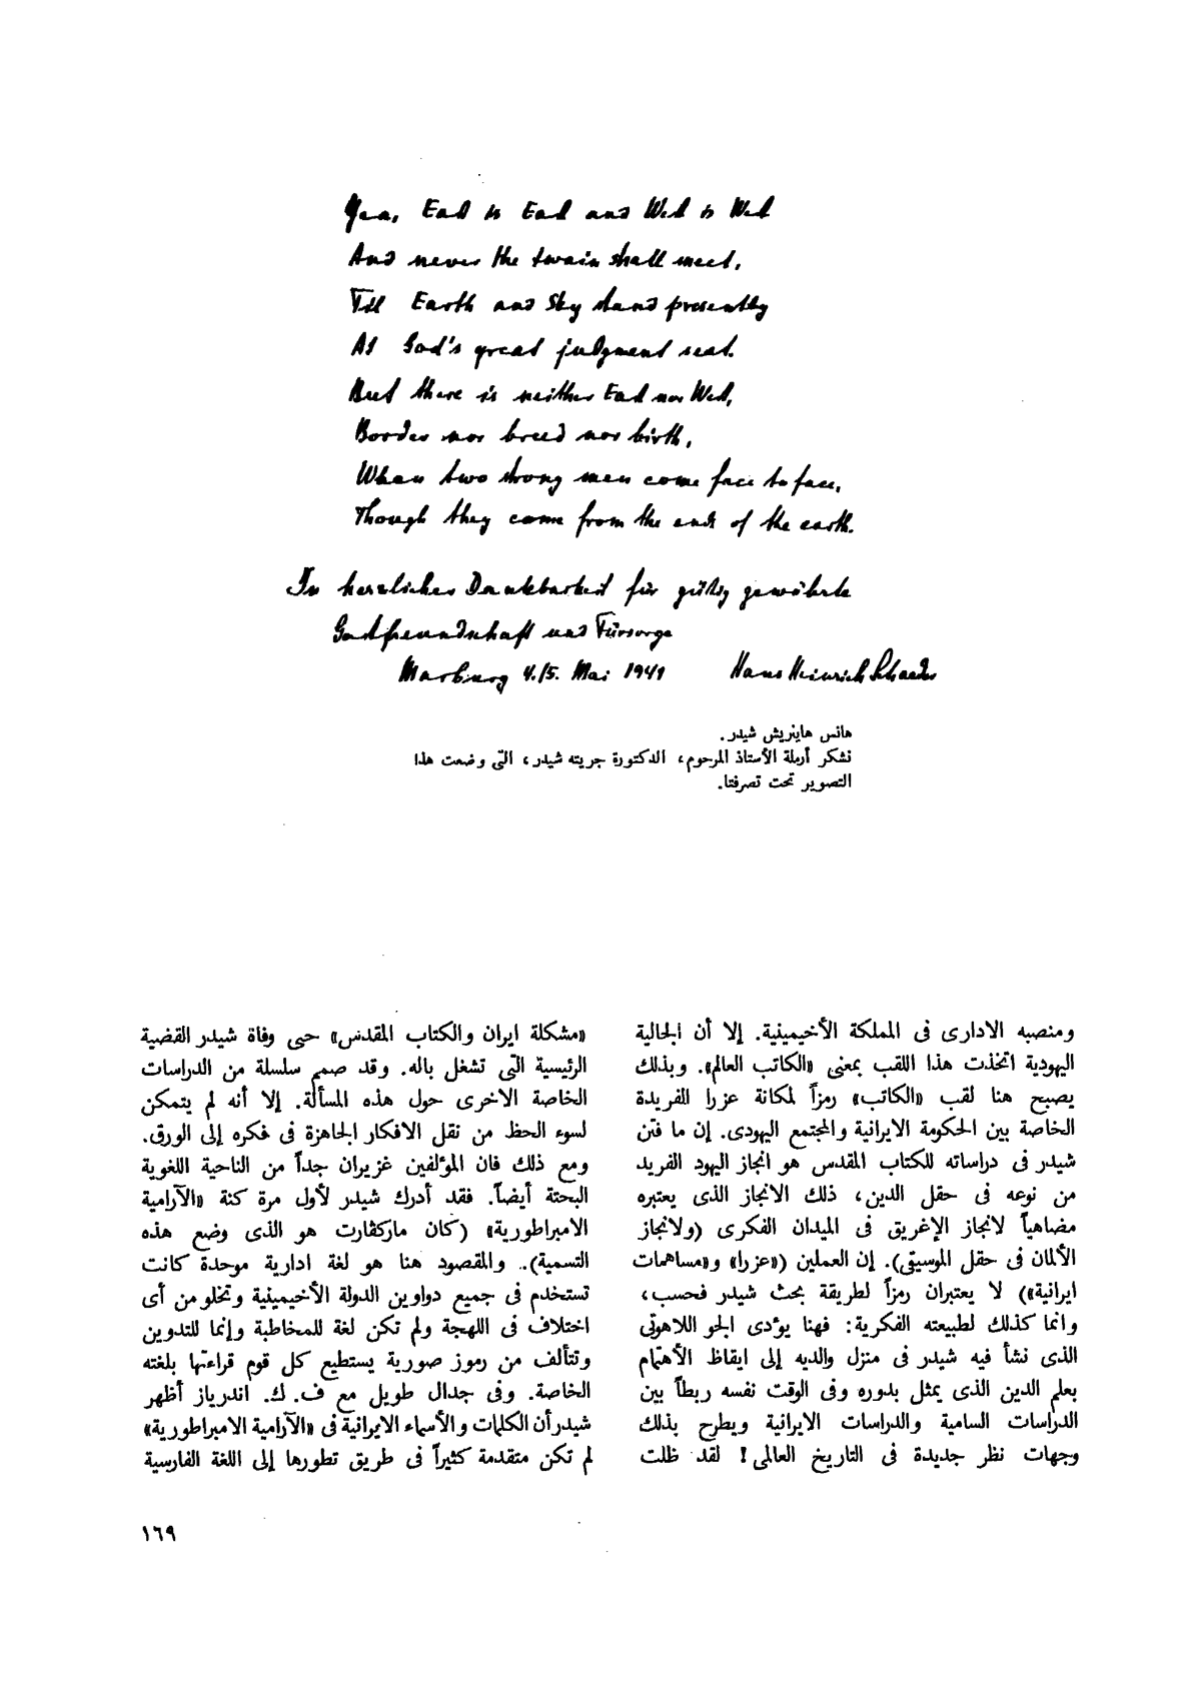 Yea, East is East and West is West
And never the twain shall meet,
Till Earth and Sky stand presently
At God's great judgment seat.
But there is neither East nor West,
Border nor breed nor birth,
When two strong men come face to face,
Though they come from the ends of the earth.
In herzlicher Dankbarkeit für gütig gewährte
Gastfreundschaft und Fürsorge
Marburg 4./5. Mai 1941 Hans Heinrich Schaeder
هانس هاينريش شيدر.
نشكر أرملة الأستاذ المرحوم، الدكتورة جريته شيدر، التى وضعت هذا
التصوير تحت تصرفنا.
ومنصبه الادارى فى المملكة الأخيمينية. إلا أن الجالية
اليهودية اتخذت هذا اللقب بمعنى «الكاتب العالم». وبذلك
يصبح هنا لقب «الكاتب» رمزاً لمكانة عزرا الفريدة
الخاصة بين الحكومة الايرانية والمجتمع اليهودى. إن ما فتن
شيدر فى دراساته للكتاب المقدس هو انجاز اليهود الفريد
من نوعه فى حقل الدين، ذلك الانجاز الذى يعتبره
مضاهياً لانجاز الإغريق فى الميدان الفكرى (ولانجاز
الألمان فى حقل الموسيقى). إن العملين («عزرا» و«مساهمات
ايرانية») لا يعتبران رمزاً لطريقة بحث شيدر فحسب،
وانما كذلك لطبيعته الفكرية: فهنا يؤدى الجو اللاهوتى
الذى نشأ فيه شيدر فى منزل والديه إلى ايقاظ الأهتمام
بعلم الدين الذى يمثل بدوره وفى الوقت نفسه ربطاً بين
الدراسات السامية والدراسات الايرانية ويطرح بذلك
وجهات نظر جديدة فى التاريخ العالمى! لقد ظلت
«مشكلة ايران والكتاب المقدس» حتى وفاة شيدر القضية
الرئيسية التى تشغل باله. وقد صمم سلسلة من الدراسات
الخاصة الاخرى حول هذه المسألة. إلا أنه لم يتمكن
لسوء الحظ من نقل الافكار الجاهزة فى فكره إلى الورق.
ومع ذلك فان المؤلفين غزيران جداً من الناحية اللغوية
البحتة أيضاً. فقد أدرك شيدر لأول مرة كنة «الآرامية
الامبراطورية» (كان ماركڤارت هو الذى وضع هذه
التسمية).. والمقصود هنا هو لغة ادارية موحدة كانت
تستخدم فى جميع دواوين الدولة الأخيمينية وتخلو من أى
اختلاف فى اللهجة ولم تكن لغة للمخاطبة وإنما للتدوين
وتتألف من رموز صورية يستطيع كل قوم قراءتها بلغته
الخاصة. وفى جدال طويل مع ف. ك. اندرياز أظهر
شيدر أن الكلمات والأسماء الايرانية فى «الآرامية الامبراطورية»
لم تكن متقدمة كثيراً فى طريق تطورها إلى اللغة الفارسية
١٦٩